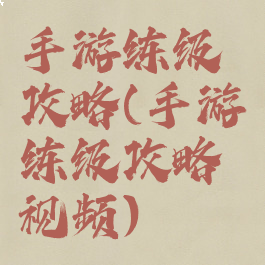 手游练级
攻略(手游
练级攻略
视频)